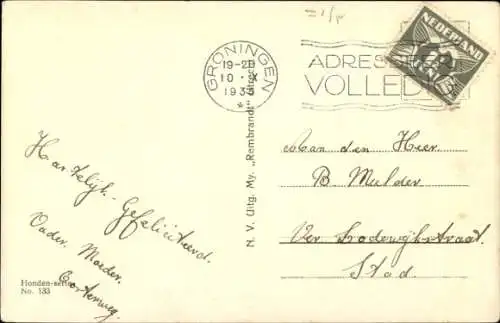 = 1/p
GRONINGEN
19-20
10 X
193
ADRESSEER
VOLLEDIG
NEDERLAND
Hartelijk Gefeliciteerd.
Vader, Moeder.
N. V. Uitg. My. „Rembrandt" Utrecht
Aan den Heer
B. Mulder
Ver. Lodewijkstraat.
Stad.
Honden-serie
No. 133